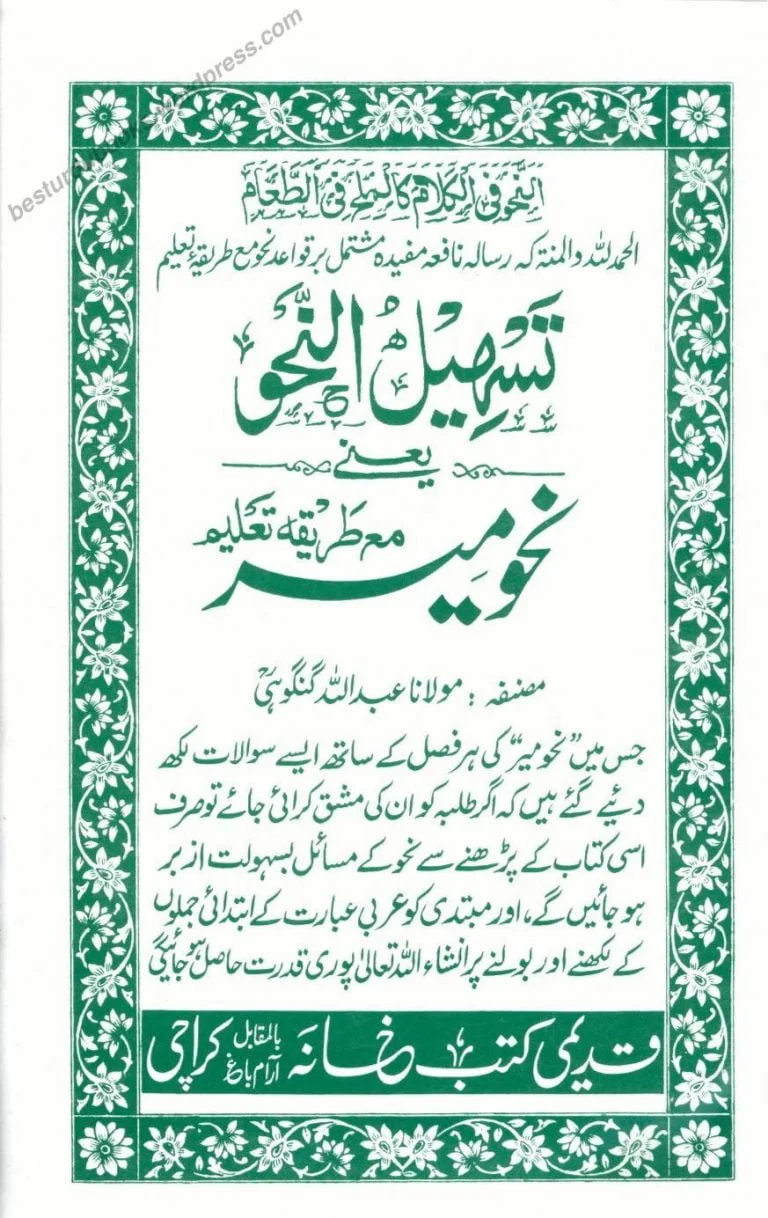 besturdubooks.wordpress.com
النحو فی الکلام کالملح فی الطعام
الحمد للہ والمنۃ کہ رسالہ نافعہ مفیدہ مشتمل بر قواعد نحو مع طریقۂ تعلیم
تَسْہِیْلُ النَّحْو
یعنی
نحو میر مع طریقہ تعلیم
مصنفہ : مولانا عبد اللہ گنگوہیؒ
جس میں ”نحو میر“ کی ہر فصل کے ساتھ ایسے سوالات لکھ
دئیے گئے ہیں کہ اگر طلبہ کو ان کی مشق کرائی جائے تو صرف
اسی کتاب کے پڑھنے سے نحو کے مسائل بسہولت ازبر
ہو جائیں گے، اور مبتدی کو عربی عبارت کے ابتدائی جملوں
کے لکھنے اور بولنے پر انشاء اللہ تعالیٰ پوری قدرت حاصل ہو جائیگی
قدیمی کتب خانہ بالمقابل آرام باغ کراچی